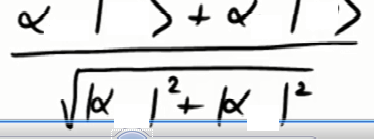 α | > + α | >
√|α |² + |α |²